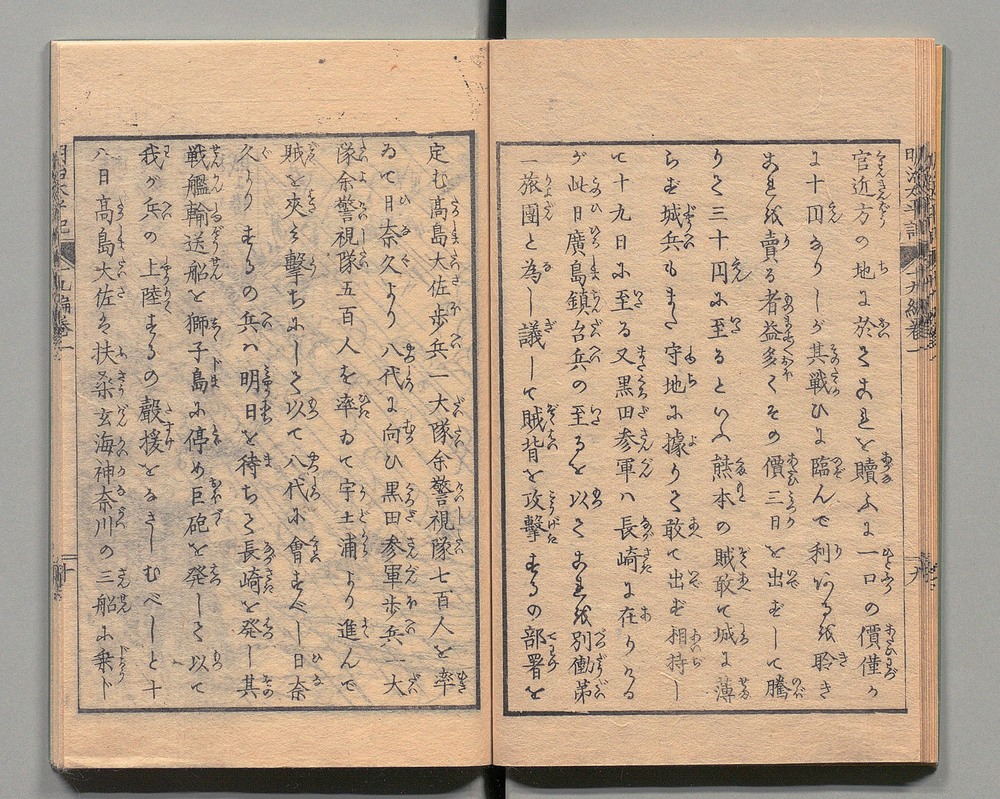 官近方の地に於てこれを贖ふに一口の價僅か
に十円なりしが其戦ひに臨んで利ある紋を聆き
これを賣る者益多くその價三日を出ずして騰
りて三十円に至るといふ熊本の賊敢て城に薄
らず城兵もまた守地に據りて敢て出ず相持し
て十九日に至る又黒田参軍ハ長崎に在りける
が此日廣島鎮台兵の至るを以てこれを別働第
一旅團と為し議して賊背を攻擊するの部署を
定む髙島大佐歩兵一大隊余警視隊七百人を率
ゐて日奈久より八代に向ひ黒田参軍歩兵一大
隊余警視隊五百人を率ゐて宇土浦より進んで
賊を夾み擊ちにして以て八代に會すべし日奈
久よりするの兵ハ明日を待ちて長崎を発し其
戦艦輸送船を獅子島に停め巨砲を発して以て
我が兵の上陸するの聲援をなさしむべしと十
八日髙島大佐ハ扶桒玄海神奈川の三船に乗じ